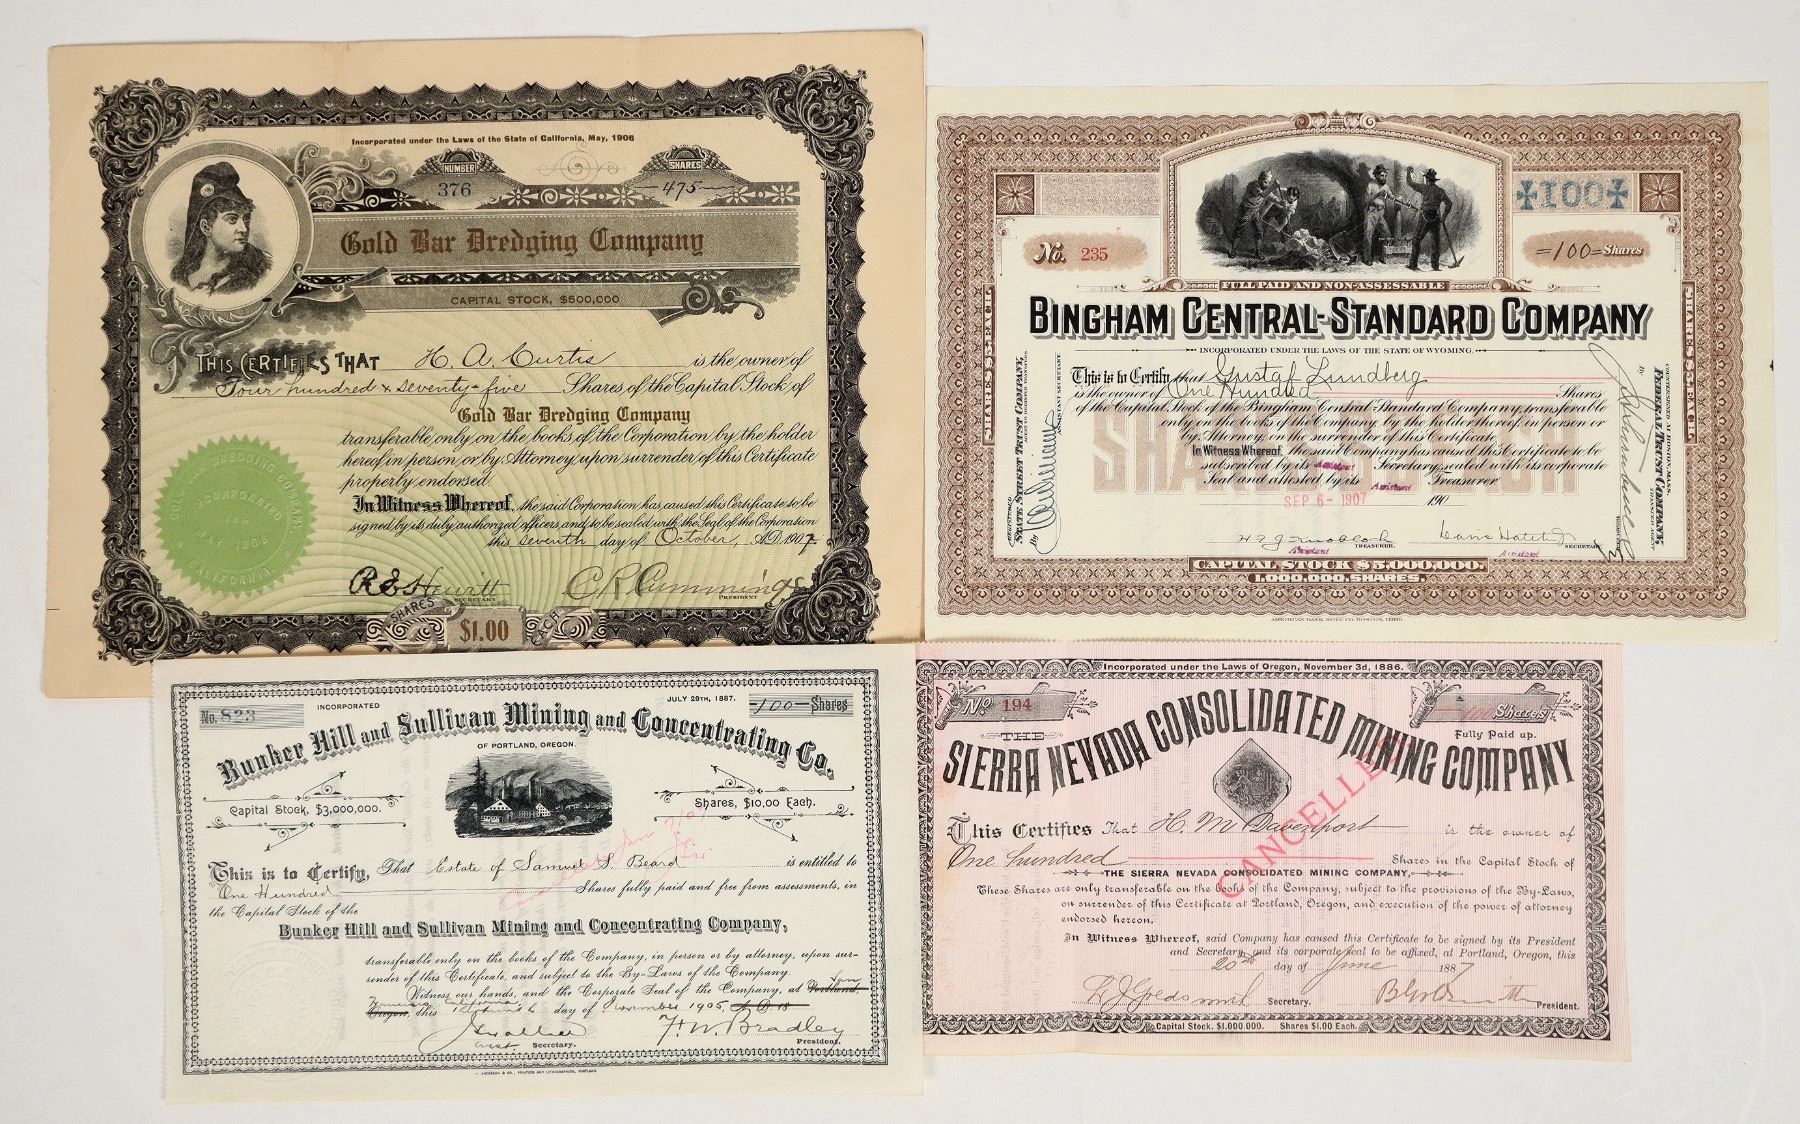 Incorporated under the Laws of the State of California, May, 1906
NUMBER
376
SHARES
475
Gold Bar Dredging Company
CAPITAL STOCK, $500,000
THIS CERTIFIES THAT H. A. Curtis is the owner of
Four hundred & seventy-five Shares of the Capital Stock of
Gold Bar Dredging Company
transferable only on the books of the Corporation by the holder
hereof in person or by Attorney upon surrender of this Certificate
properly endorsed.
In Witness Whereof, the said Corporation has caused this Certificate to be
signed by its duly authorized officers, and to be sealed with the Seal of the Corporation
this Seventh day of October, A.D. 1907.
GOLD BAR DREDGING COMPANY.
INCORPORATED
MAY 1906
CALIFORNIA.
R E Hewitt SECRETARY
C R Cummings PRESIDENT
SHARES $1.00 EACH
No. 235
100
=100= Shares
FULL PAID AND NON-ASSESSABLE
BINGHAM CENTRAL-STANDARD COMPANY
INCORPORATED UNDER THE LAWS OF THE STATE OF WYOMING.
This is to Certify that Gustaf Lundberg
is the owner of One Hundred Shares
of the Capital Stock of the Bingham Central-Standard Company, transferable
only on the books of the Company by the holder thereof, in person or
by Attorney, on the surrender of this Certificate.
In Witness Whereof, the said Company has caused this Certificate to be
subscribed by its Assistant Secretary, sealed with its corporate
Seal and attested by its Assistant Treasurer
SEP 6 - 1907 190
TREASURER.
Assistant
SECRETARY
Assistant
SHARES $5. EACH.
SHARES $5. EACH.
STATE STREET TRUST COMPANY,
By
ASSISTANT SECRETARY.
COUNTERSIGNED AT BOSTON, MASS.
FEDERAL TRUST COMPANY,
TRANSFER AGENT
By
CAPITAL STOCK $5,000,000.
1,000,000 SHARES.
AMERICAN BANK NOTE CO. BOSTON.
No. 823
INCORPORATED
JULY 29TH, 1887.
100 Shares
Bunker Hill and Sullivan Mining and Concentrating Co.
OF PORTLAND, OREGON.
Capital Stock, $3,000,000.
Shares, $10,00 Each.
This is to Certify, That Estate of Samuel S. Beard is entitled to
One Hundred Shares fully paid and free from assessments, in
the Capital Stock of the
Bunker Hill and Sullivan Mining and Concentrating Company,
transferable only on the books of the Company, in person or by attorney, upon sur-
render of this Certificate, and subject to the By-Laws of the Company.
Witness our hands, and the Corporate Seal of the Company, at Portland San
Francisco California
Oregon, this day of November 1905 A.D. 18
Asst Secretary.
F. W. Bradley
President.
ANDERSON & CO., PRINTERS AND LITHOGRAPHERS, PORTLAND
Incorporated under the Laws of Oregon, November 3d, 1886.
No 194
100 Shares
Fully Paid up.
THE
SIERRA NEVADA CONSOLIDATED MINING COMPANY
CANCELLED
This Certifies That H. M Davenport is the owner of
One hundred Shares in the Capital Stock of
THE SIERRA NEVADA CONSOLIDATED MINING COMPANY,
These Shares are only transferable on the books of the Company, subject to the provisions of the By-Laws,
on surrender of this Certificate at Portland, Oregon, and execution of the power of attorney
endorsed hereon.
In Witness Whereof, said Company has caused this Certificate to be signed by its President
and Secretary and its corporate seal to be affixed, at Portland, Oregon, this
20th day of June 1887
Secretary.
B Goldsmith President.
Capital Stock. $1.000.000. Shares $1.00 Each.